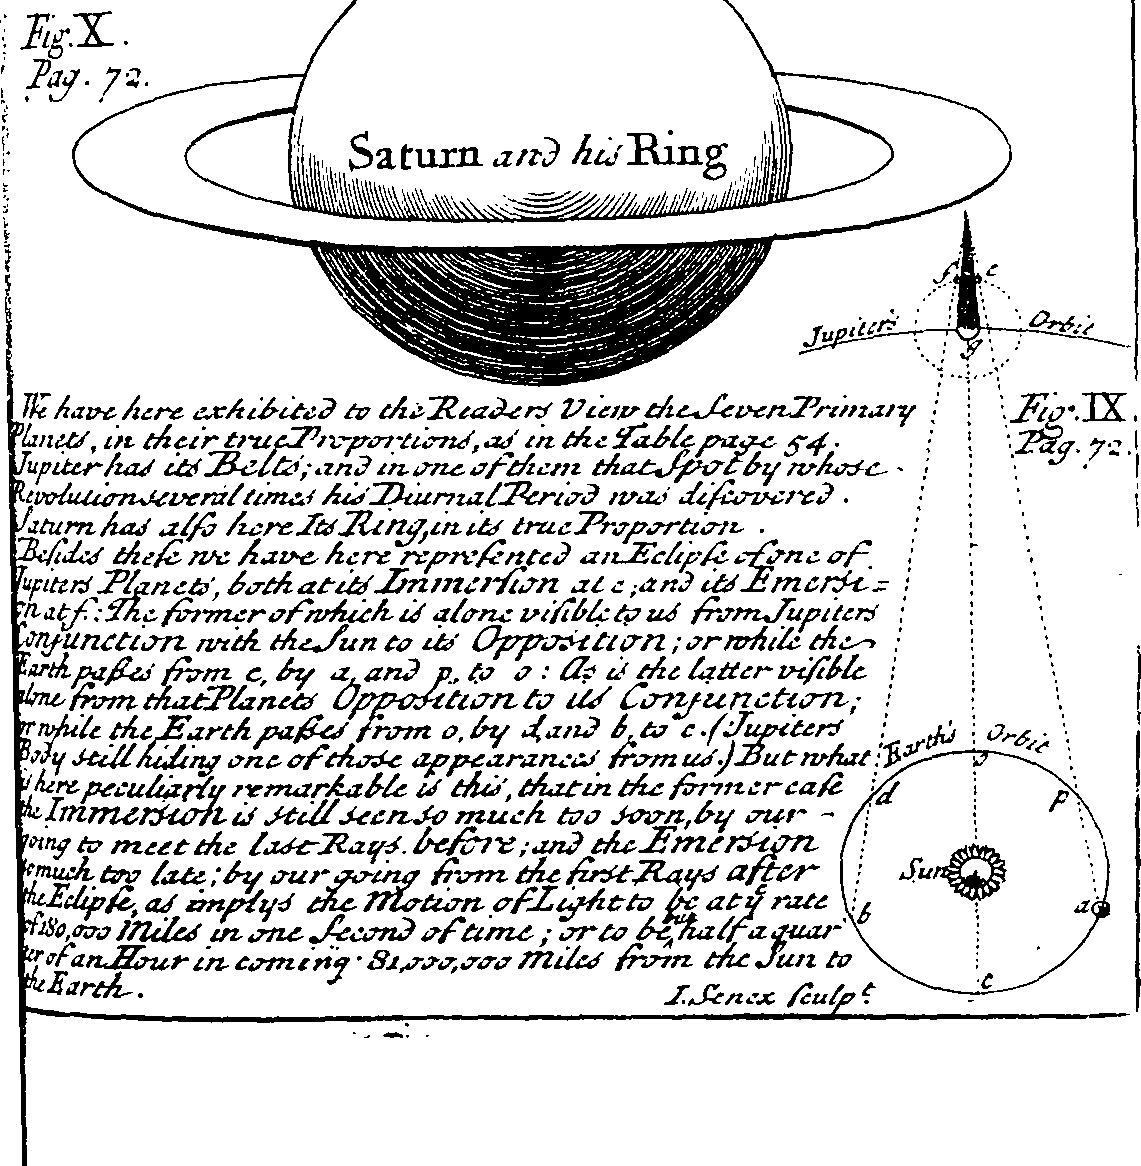 Fig. X.
Pag. 72.
Saturn and his Ring
f e
Jupiter's Orbit
g
Fig. IX.
Pag. 72.
We have here exhibited to the Readers View the Seven Primary
Planets, in their true Proportions, as in the Table page 54.
Jupiter has its Belts; and in one of them that Spot by whose
Revolution several times his Diurnal Period was discovered.
Saturn has also here Its Ring, in its true Proportion.
Besides these we have here represented an Eclipse of one of
Jupiters Planets, both at its Immersion at e; and its Emersi=
on at f: The former of which is alone visible to us from Jupiters
Conjunction with the Sun to its Opposition; or while the
Earth paßes from c, by a, and p, to o: As is the latter visible
alone from that Planets Opposition to its Conjunction;
or while the Earth paßes from o, by d, and b, to c. (Jupiters
Body still hiding one of those appearances from us.) But what
is here peculiarly remarkable is this, that in the former case
the Immersion is still seen so much too soon, by our
going to meet the last Rays before; and the Emersion
so much too late; by our going from the first Rays after
the Eclipse, as implys the Motion of Light to be at yͤ rate
of 180,000 Miles in one Second of time; or to be but half a quar
ter of an Hour in coming 81,000,000 Miles from the Sun to
the Earth.
I. Senex sculpᵗ.
Earth's Orbit
o
d p
Sun
b a
c